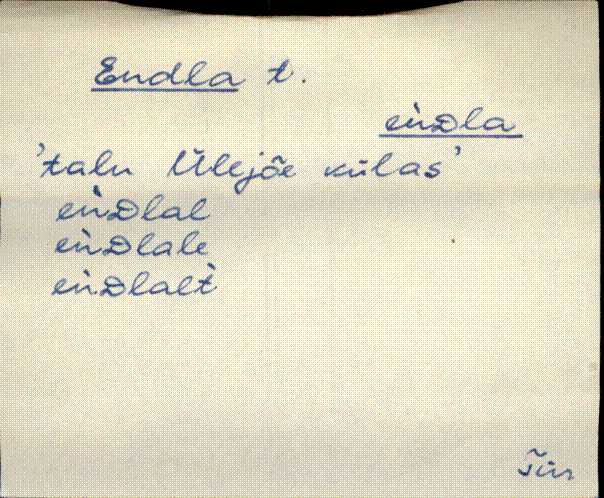 Endla t.
eǹDla
'talu Ülejõe külas'
eǹDlal
eǹDlale
eǹDlalt̀
Jür